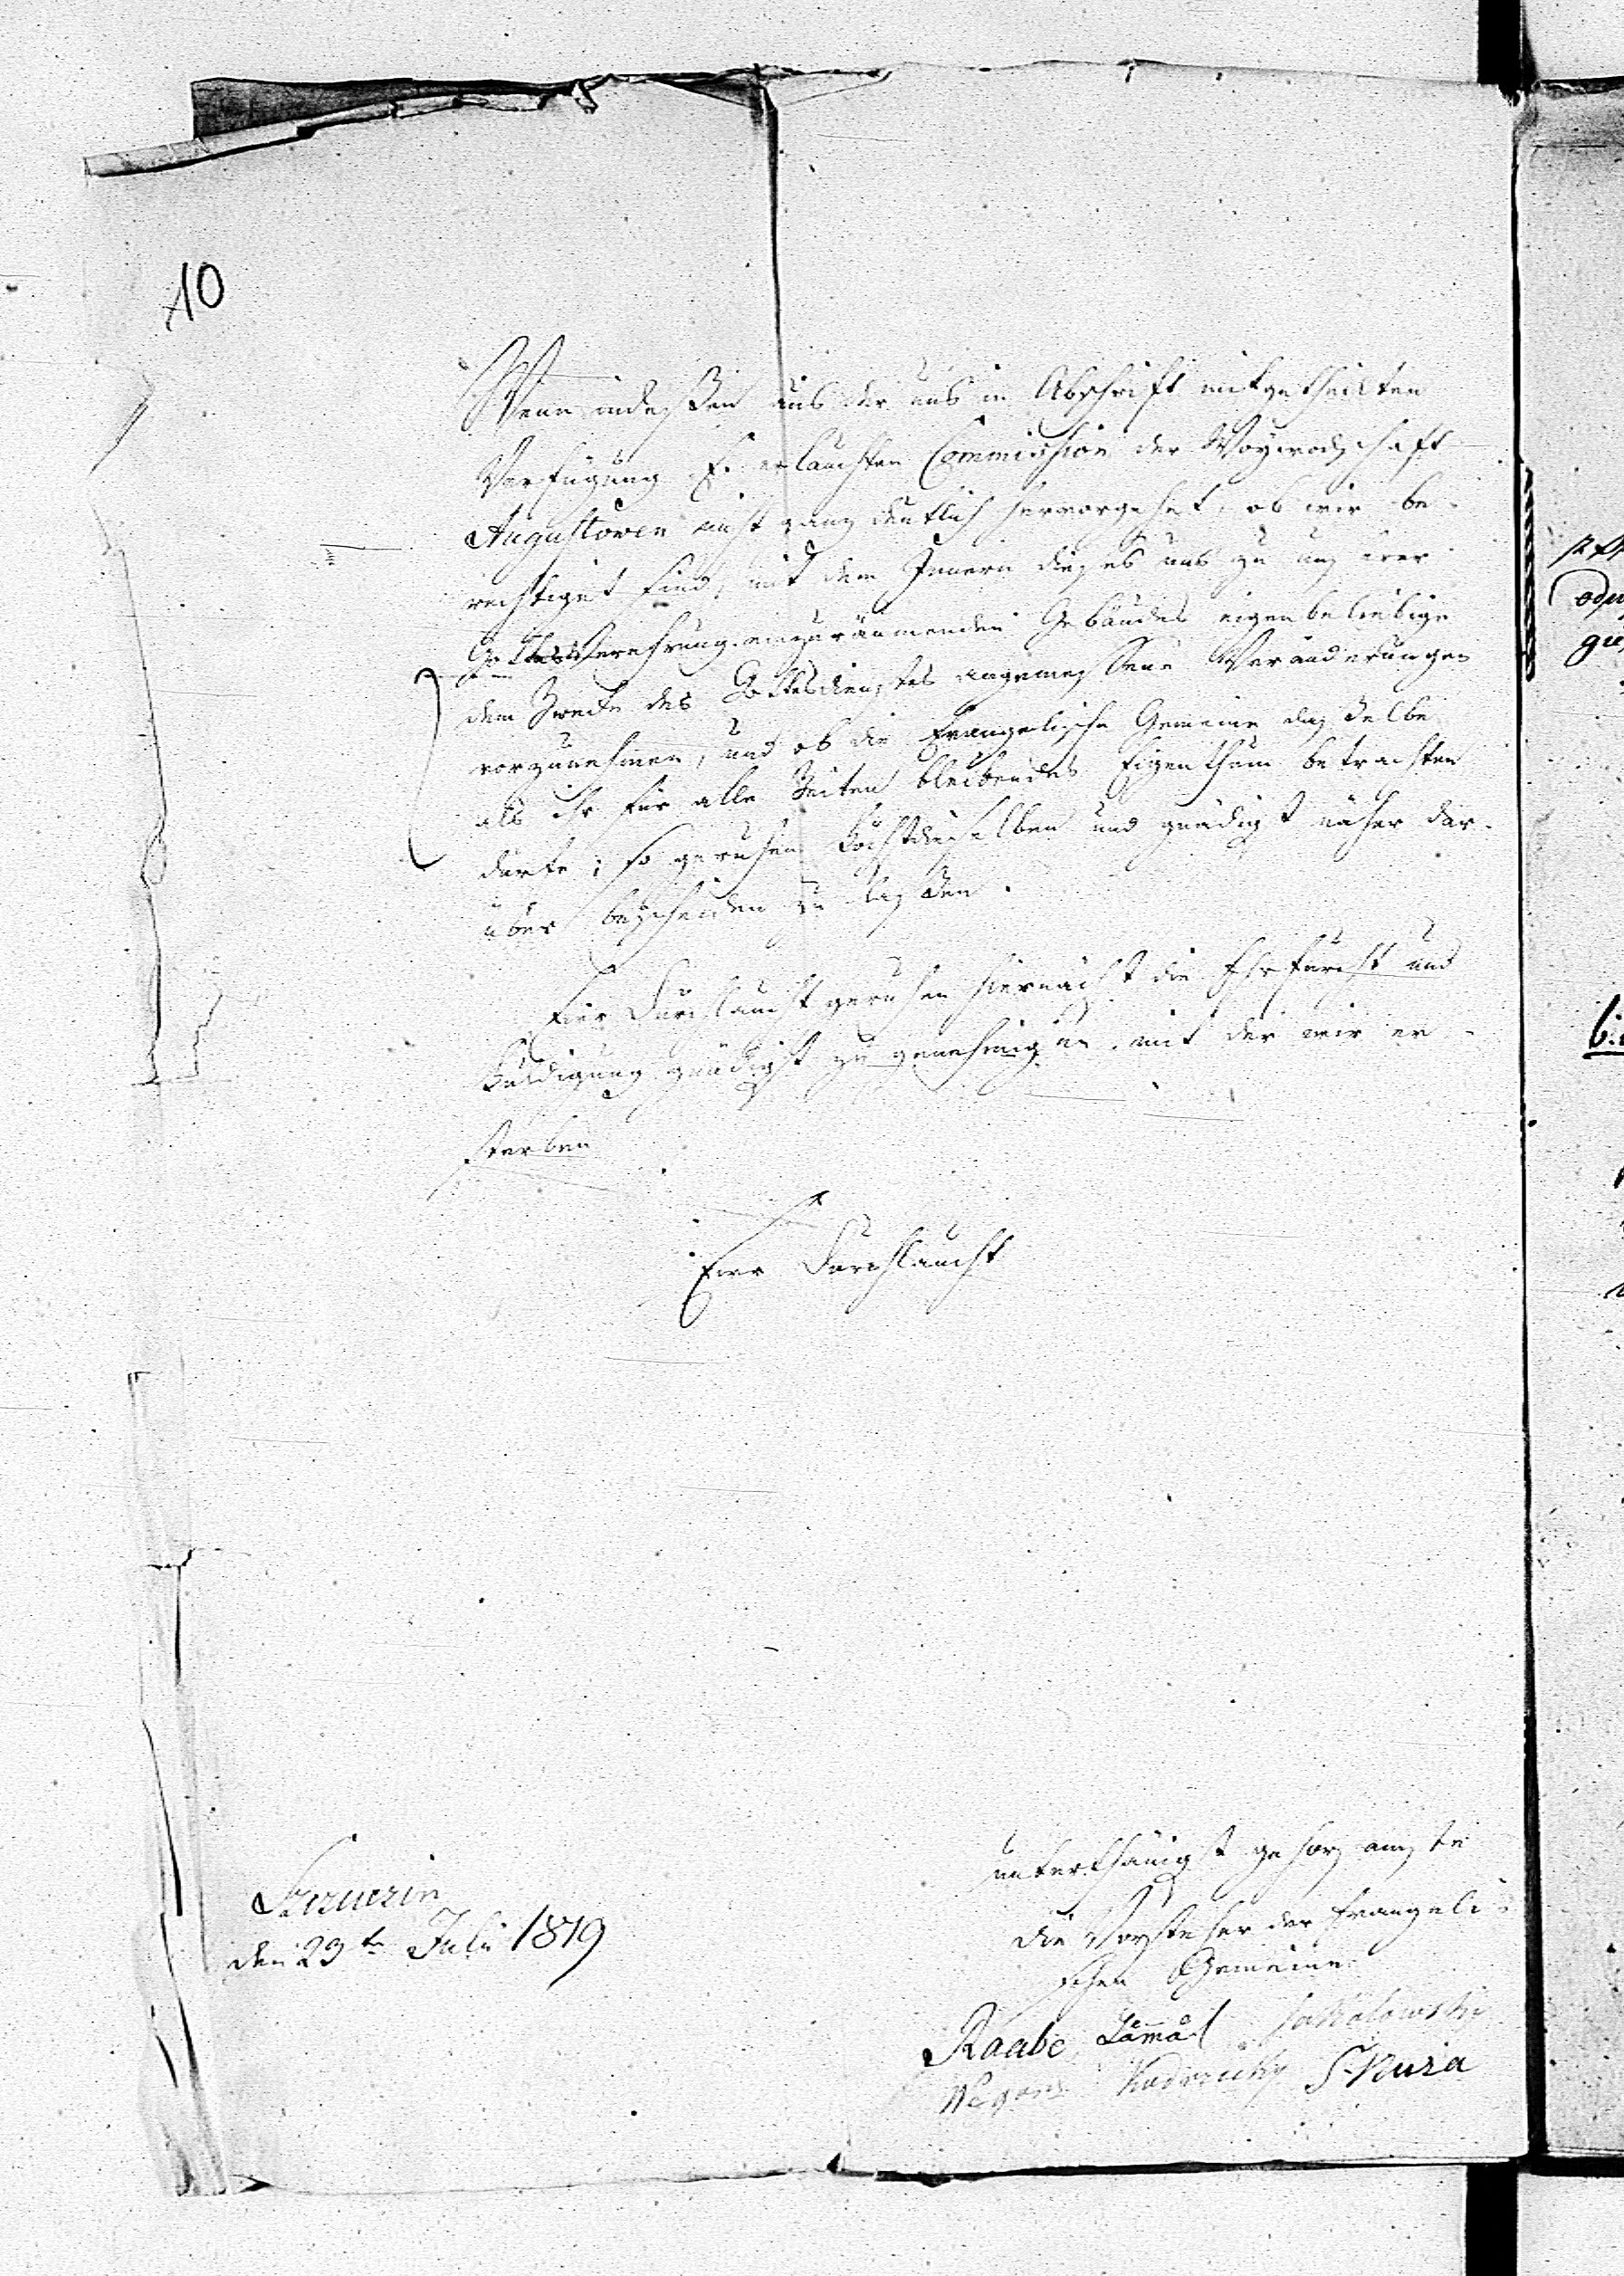 10
Wenn indessen aus der uns in Abschrift mitgetheilten
Verfügung E. erlauchten Commission der Woywodschaft
Augustowen nicht ganz deutlich hervorgehet, ob wir be-
rechtiget sind, mit dem Innern dieses uns zu unserer
Gottesverehrung einzuräumenden Gebäudes eigenbeliebige
dem Zwecke des Gottesdienstes angemessene Veränderungen
vorzunehmen, und ob die Evangelische Gemeine dasselbe
als ihr für alle Zeiten bleibendes Eigenthum betrachten
dürfe; so geruhen Höchstdieselben uns gnädigst näher dar-
über bescheiden zu lassen.
Eure Durchlaucht geruhen hiernächst die Ehrfurcht und
Huldigung gnädigst zu genehmigen, mit der wir er-
sterben
Eurer Durchlaucht
unterthänigst gehorsamste
die Vorsteher der Evangeli-
schen Gemeine
Szczuczin
den 23ten Juli 1819
Raabe Sakolowsky
Skuza